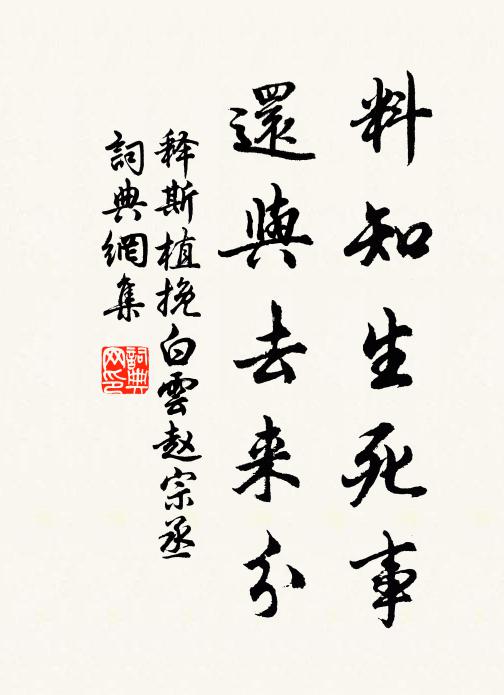 料知生死事
還與去来分
释斯植挽白雲赵宗丞
詞典網集
詞典网印